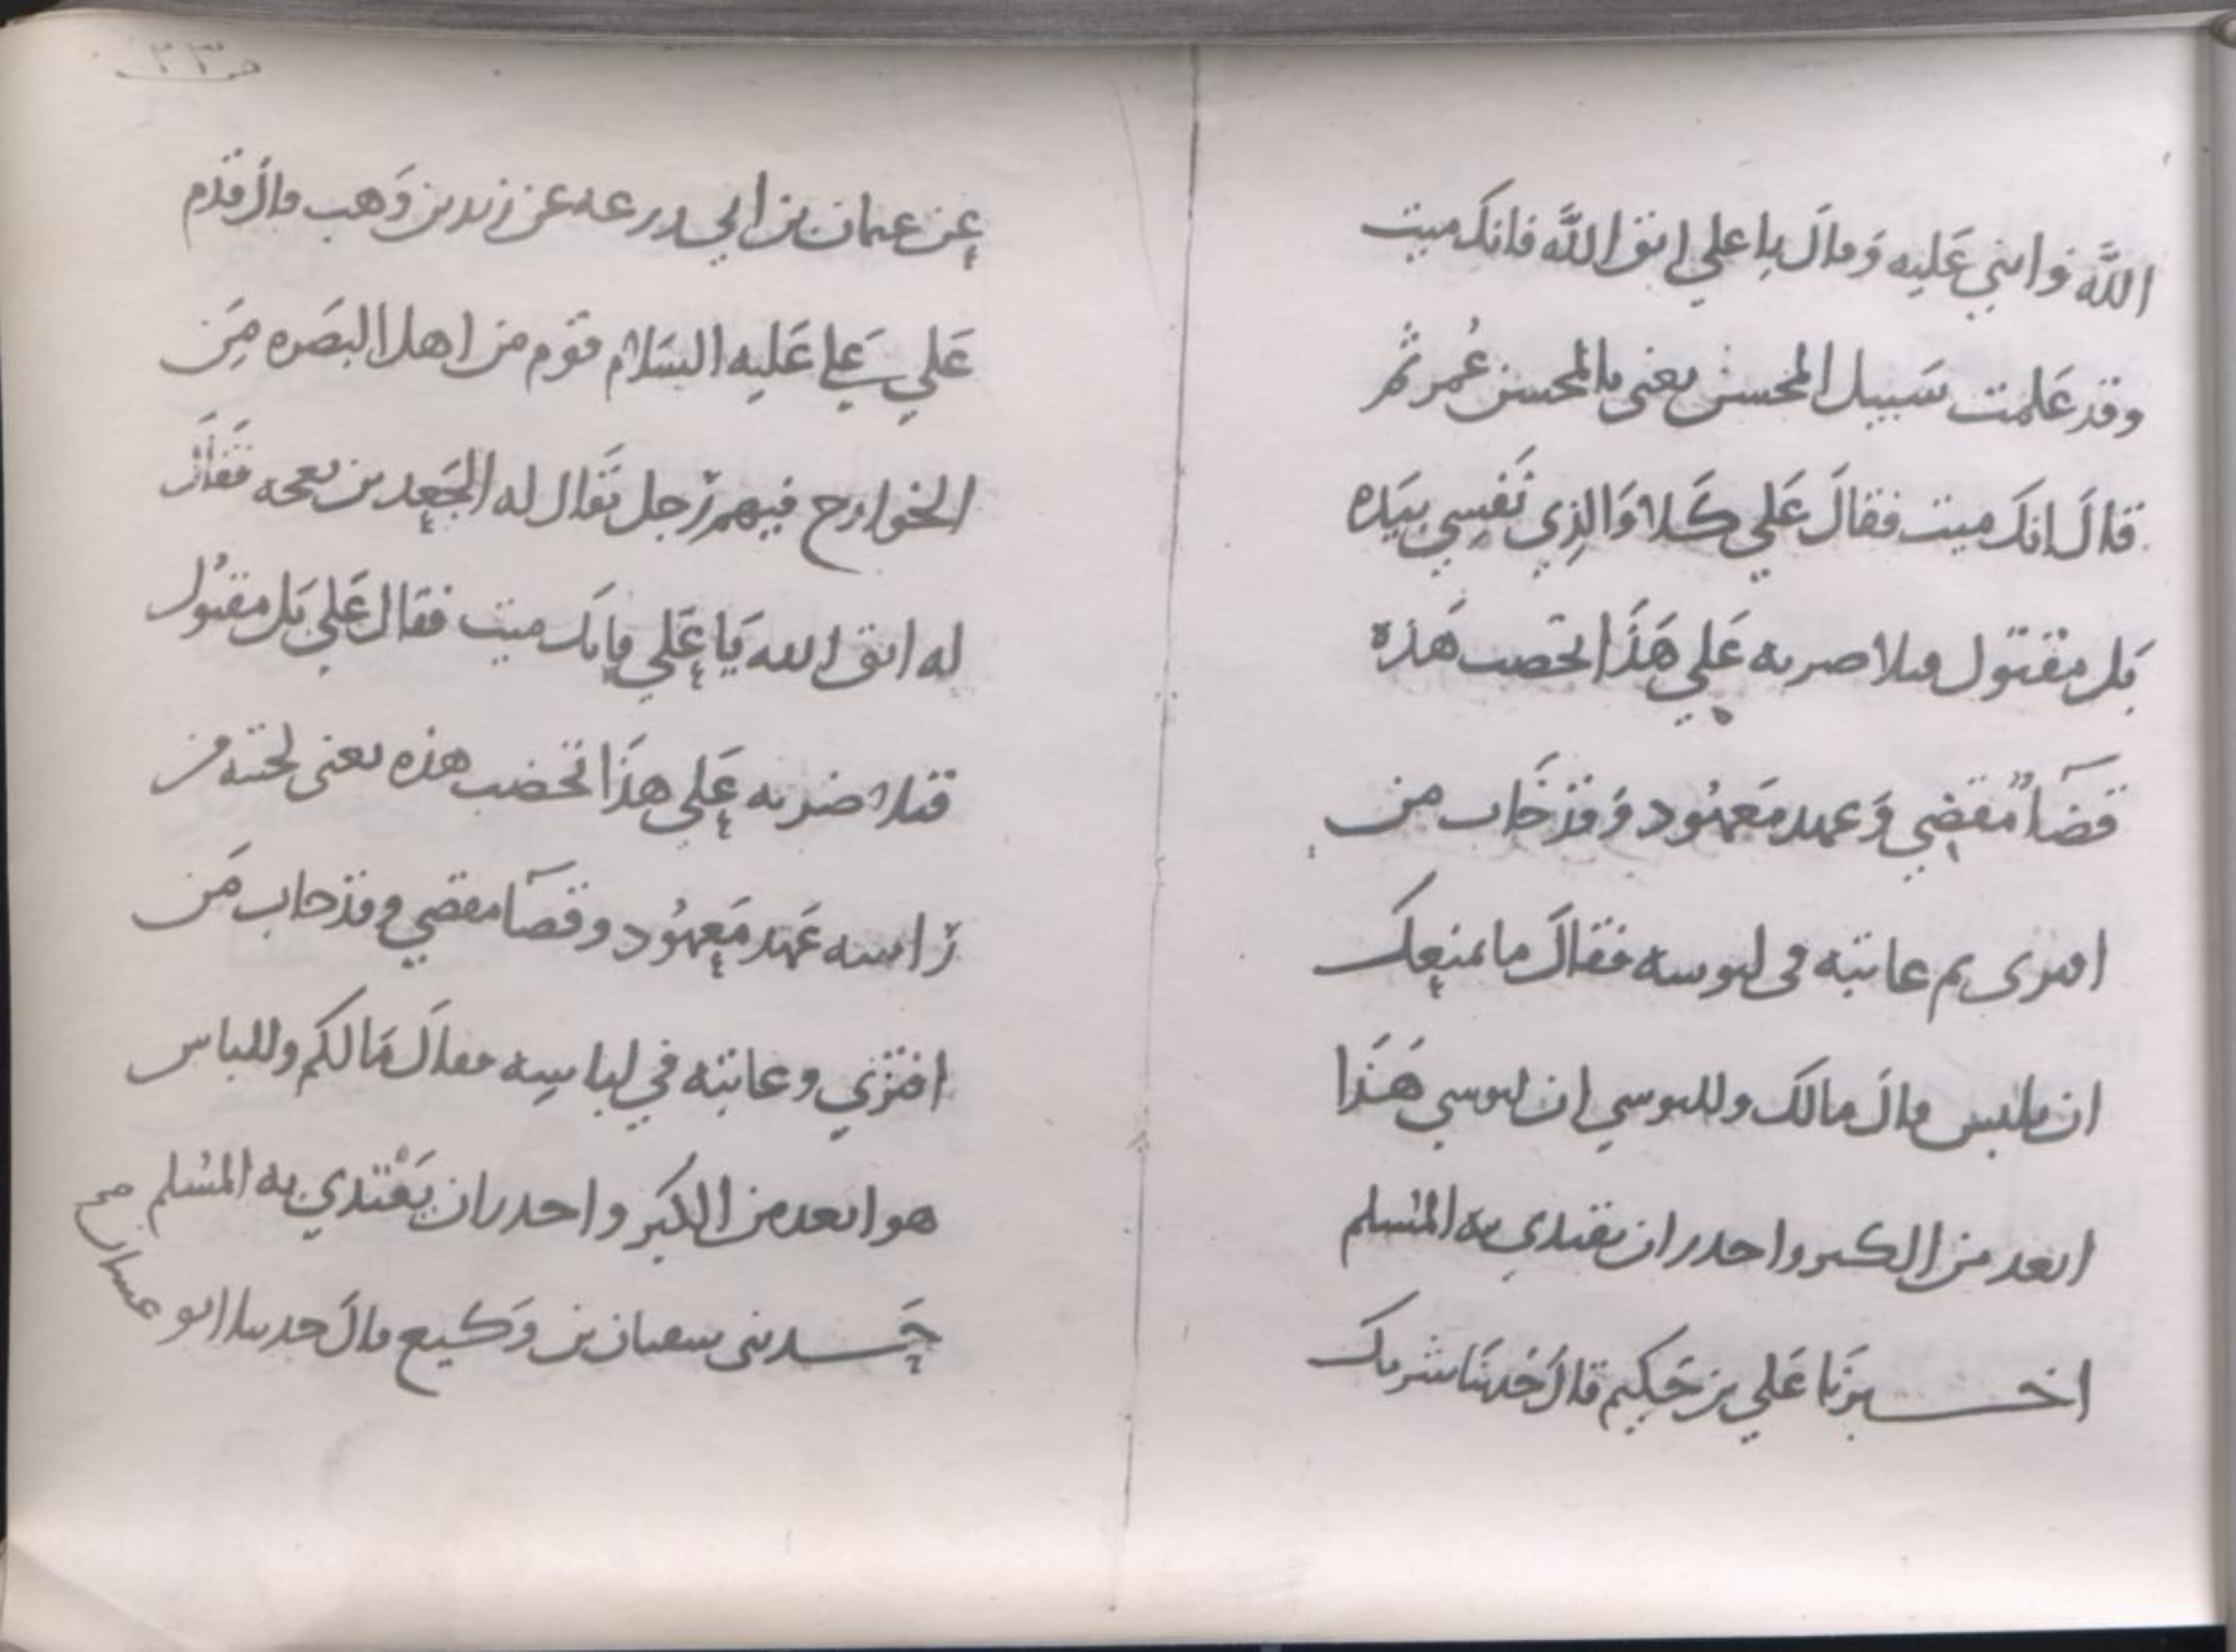 الله واثنى عَليه وَقالَ يا علي اتق اللَّه فانكَ ميت
وقد عَلمت سَبيل المحسن يعنى بالمحسن عُمر ثم
قالَ انكَ ميت فقالَ عَلي كَلا وَالذِي نَفسِي بيَده
بَل مقتول قتلا ضربه عَلي هَذَا تخضب هَذه
قضَآءً مقضِي وَعهد مَعهُود وَقد خَاب من
افترى ثم عاتبه فى لبوسه فقالَ ما يمنعكَ
ان تلبس قالَ مالَك وللبوسي ان لبوسي هَذَا
ابعد من الكبر واجدر ان يقتدي به المُسلم
اخــبرنَا عَلي بن حَكيم قالَ حَدثنَا شريك
ص ٢٣
عن عثمان بن ابي زرعه عن زيد بن وَهب قالَ قدم
عَلي عَلي عَليه السَلام قوم من اهل البصَره مِن
الخوارج فيهم رَجل يقَال له الجَعد بن بعجه فقَالَ
له اتق الله يَا عَلي فانكَ ميت فقالَ عَلي بَل مقتُول
قتلا ضربه عَلي هذَا تخضب هذه يعنى لحيته من
رَاسه عَهد مَعهُود وقضَآ مقضي وقد خاب مَن
افترَي وعاتبه في لباسِه فقالَ مَا لكم وللباس
هو ابعد من الكبر واجدر ان يَقْتدي به المسُلم
حَــدثنى سفيان بن وَكيع قالَ حدثنا ابو غسان